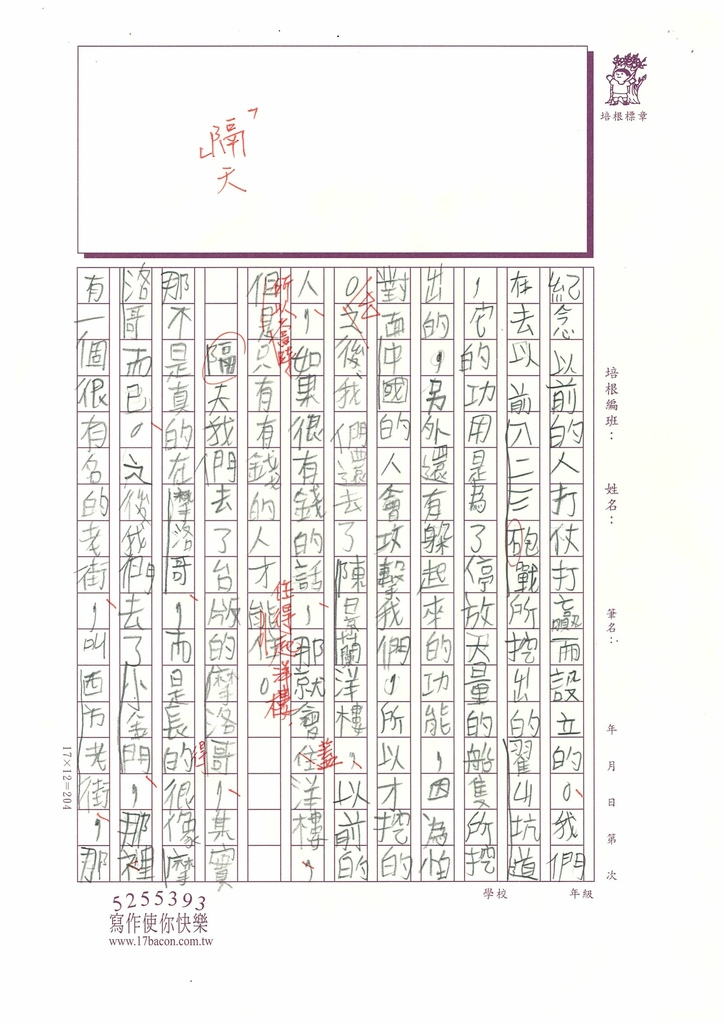 「隔」天
培根標章
培根編班：　姓名：　筆名：　年　月　日　第　次
學校　年級
紀念以前的人打仗打贏而設立的。我們
在去以前八二三砲戰所挖出的翟山坑道
，它的功用是為了停放大量的船隻所挖
出的，另外還有躲起來的功能，因為怕
對面中國的人會攻擊我們，所以才挖的
。之後我們還去了陳景蘭洋樓，以前的
人，如果很有錢的話，那就會住洋樓，
蓋
但是只有有錢的人才能住。
所以當時
住得起洋樓
隔天我們去了台版的摩洛哥，其實
那不是真的在摩洛哥，而是長的很像摩
得
洛哥而已。之後我們去了小金門，那裡
有一個很有名的老街，叫西方老街，那
17×12=204
5255393
寫作使你快樂
www.17bacon.com.tw